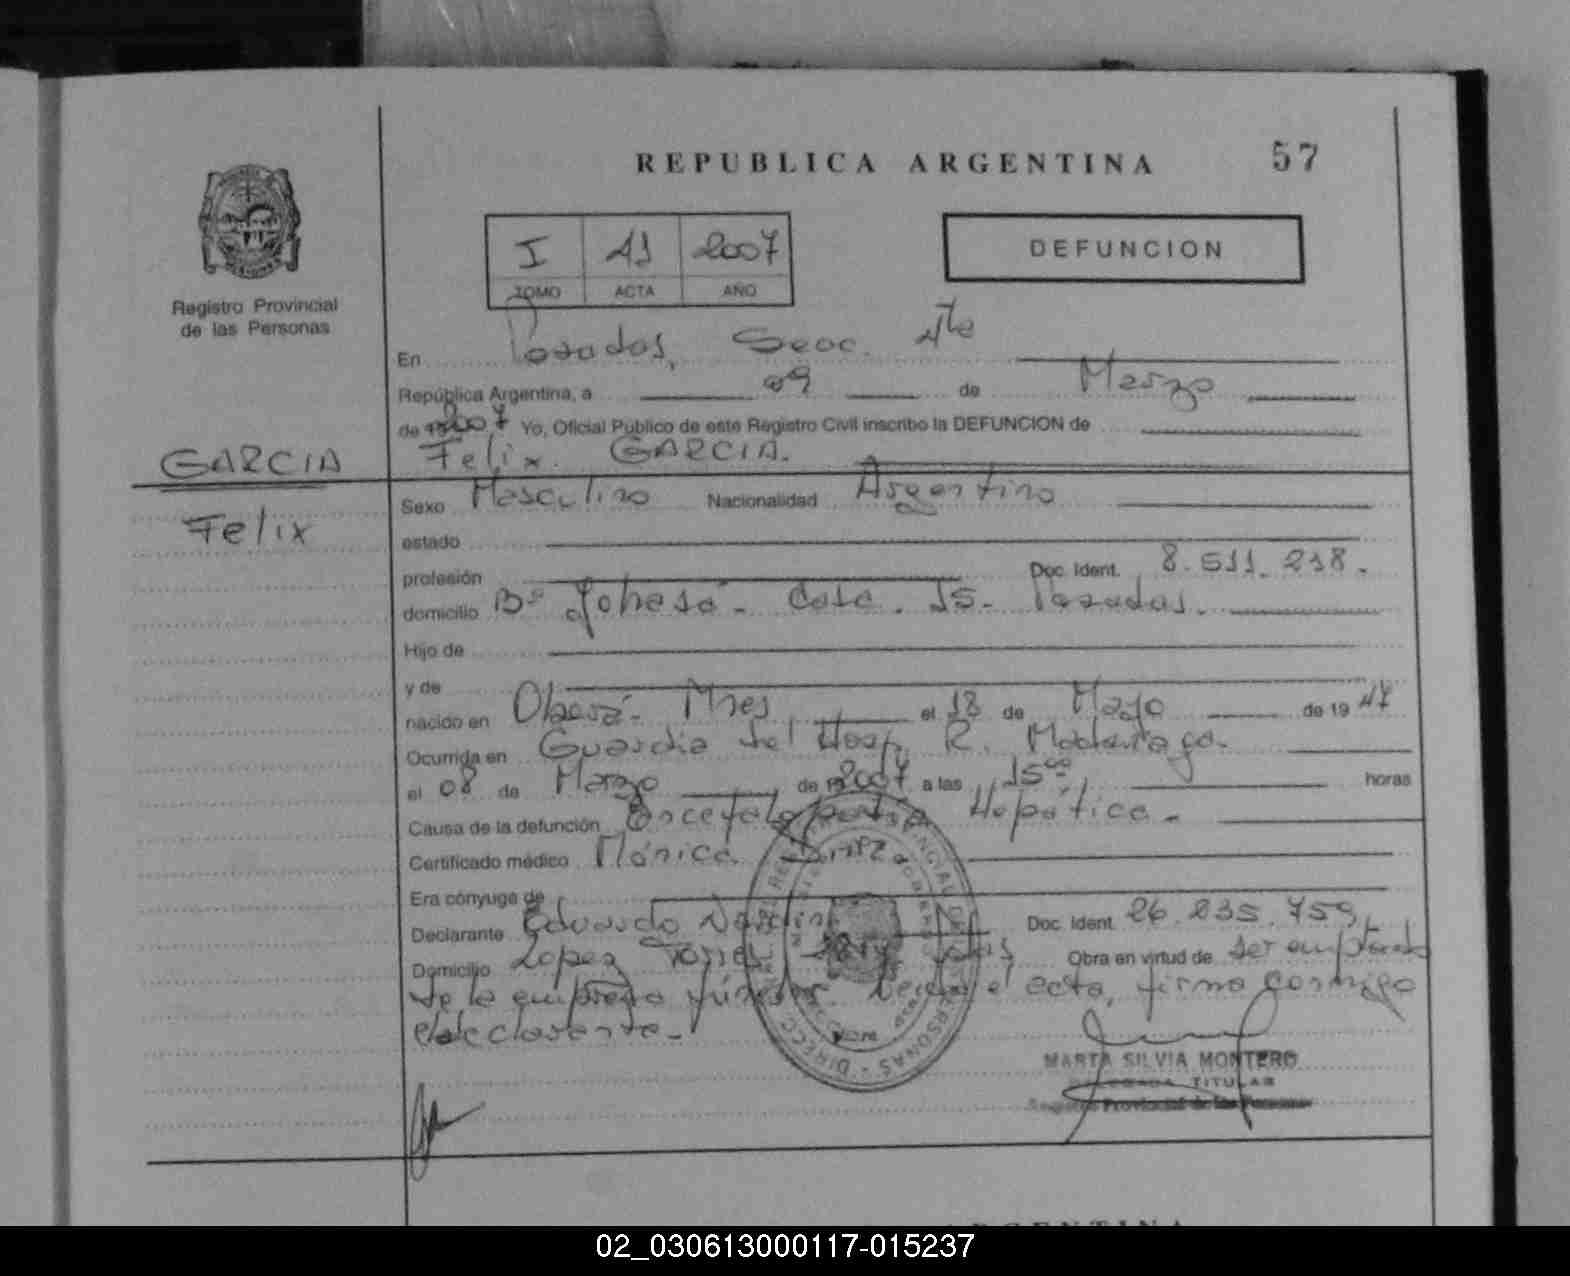 REPUBLICA ARGENTINA 57
I 41 2007
TOMO ACTA AÑO
DEFUNCION
Registro Provincial
de las Personas
En Posadas, Secc. 4ta
República Argentina, a 09 de Marzo
de 2007 Yo, Oficial Público de este Registro Civil inscribo la DEFUNCION de
GARCIA
Felix
Felix GARCIA.
Sexo Masculino Nacionalidad Argentino
estado
profesión Doc. Ident. 8.511.218.
domicilio Bº Yohasá - Casa. 15 - Posadas.
Hijo de
y de
nacido en Oberá - Mnes el 18 de Mayo de 19 47
Ocurrida en Guardia del Hosp. R. Madariaga.
el 08 de Marzo de 2007 a las 15 00 horas
Causa de la defunción Encefalopatía Hepática -
Certificado médico Mónica
Era cónyuge de
Declarante Eduardo Doc. Ident. 26.235.759,
Domicilio Lopez Torres Obra en virtud de ser empleado
de la empresa fúnebre. Leida el acta, firma conmigo
el declarante -
MARTA SILVIA MONTERO
TITULAR
Registro Provincial de las Personas
02_030613000117-015237